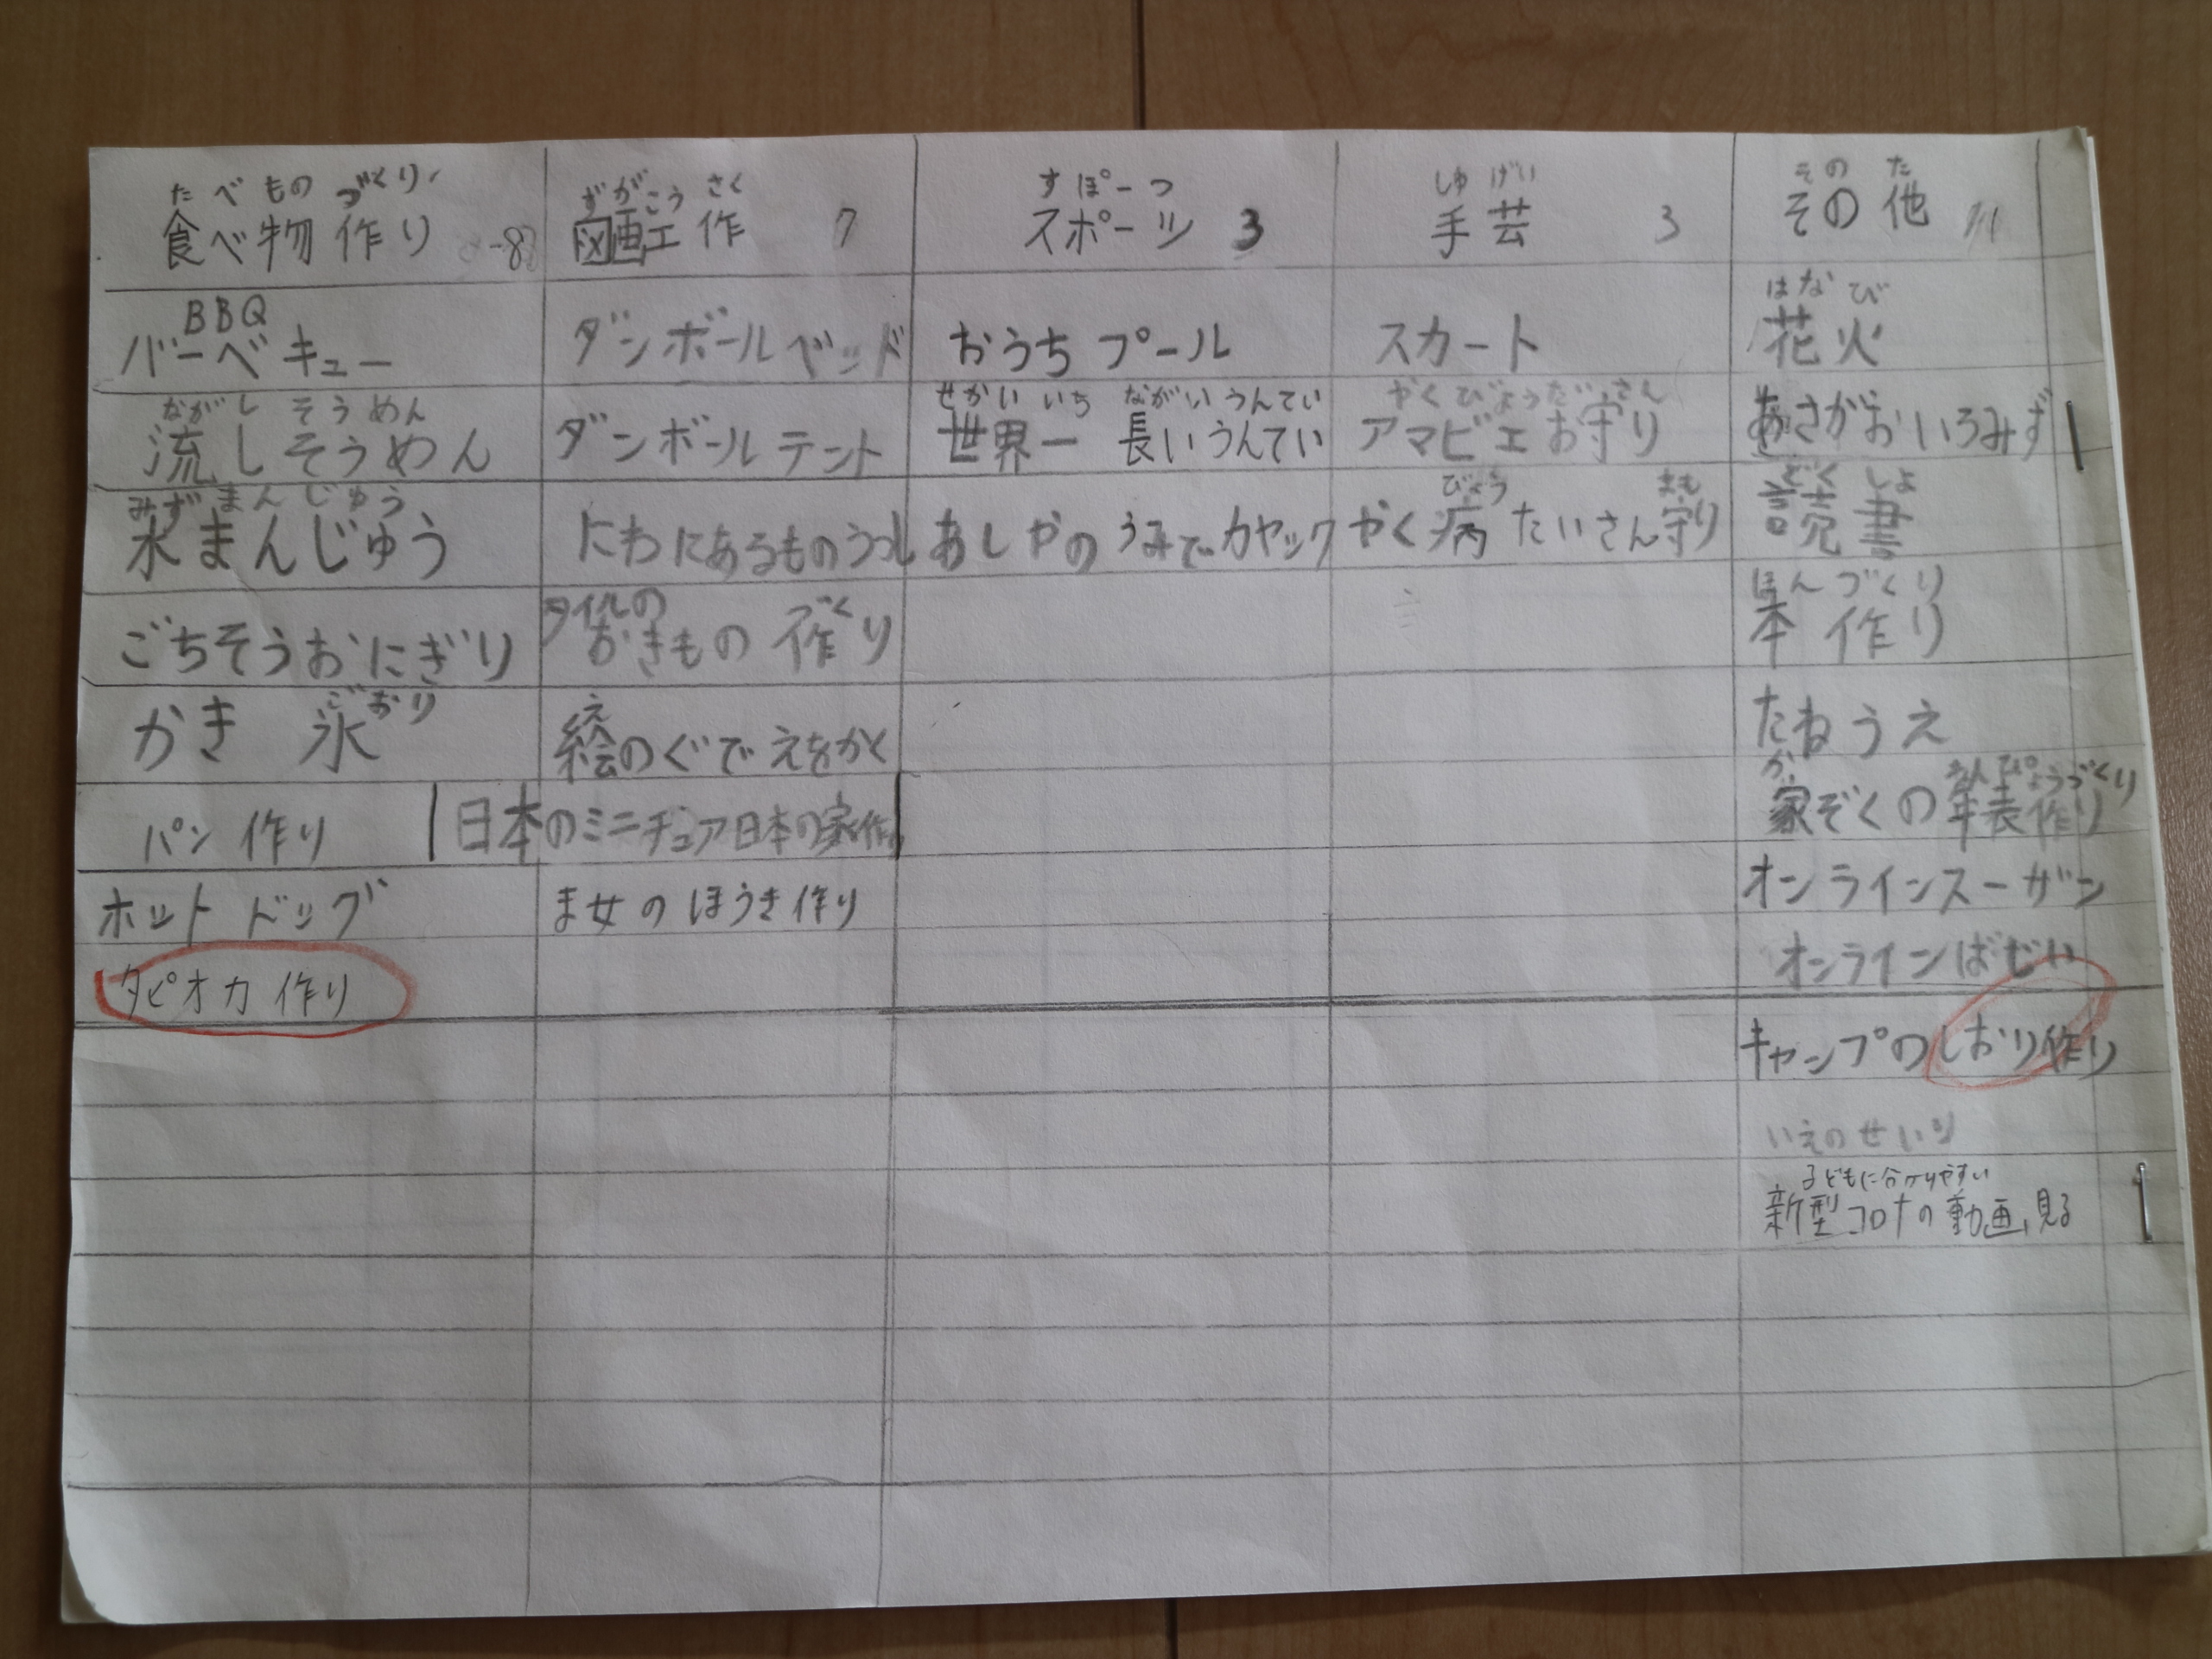 たべものづくり
食べ物作り 8
BBQ
バーベキュー
ながしそうめん
流しそうめん
みずまんじゅう
水まんじゅう
ごちそうおにぎり
ごおり
かき氷
パン作り
ホットドッグ
タピオカ作り
ずがこうさく
図画工作 7
ダンボールベッド
ダンボールテント
にわにあるものうつし
タイルの づく
おきもの作り
え
絵のぐでえをかく
日本のミニチュア日本の家作り
ま女のほうき作り
すぽーつ
スポーツ 3
おうちプール
せかいいち ながいうんてい
世界一 長いうんてい
あしやのうみでカヤック
しゅげい
手芸 3
スカート
やくびょうたいさん
アマビエお守り
びょう まも
やく病たいさん守り
そのた
その他 11
はなび
花火
あさがおいろみず
どくしょ
読書
ほんづくり
本作り
たねうえ
か ねんぴょうづくり
家ぞくの年表作り
オンラインスーザン
オンラインばぁじい
キャンプのしおり作り
いえのせいり
子どもに分かりやすい
新型コロナの動画見る